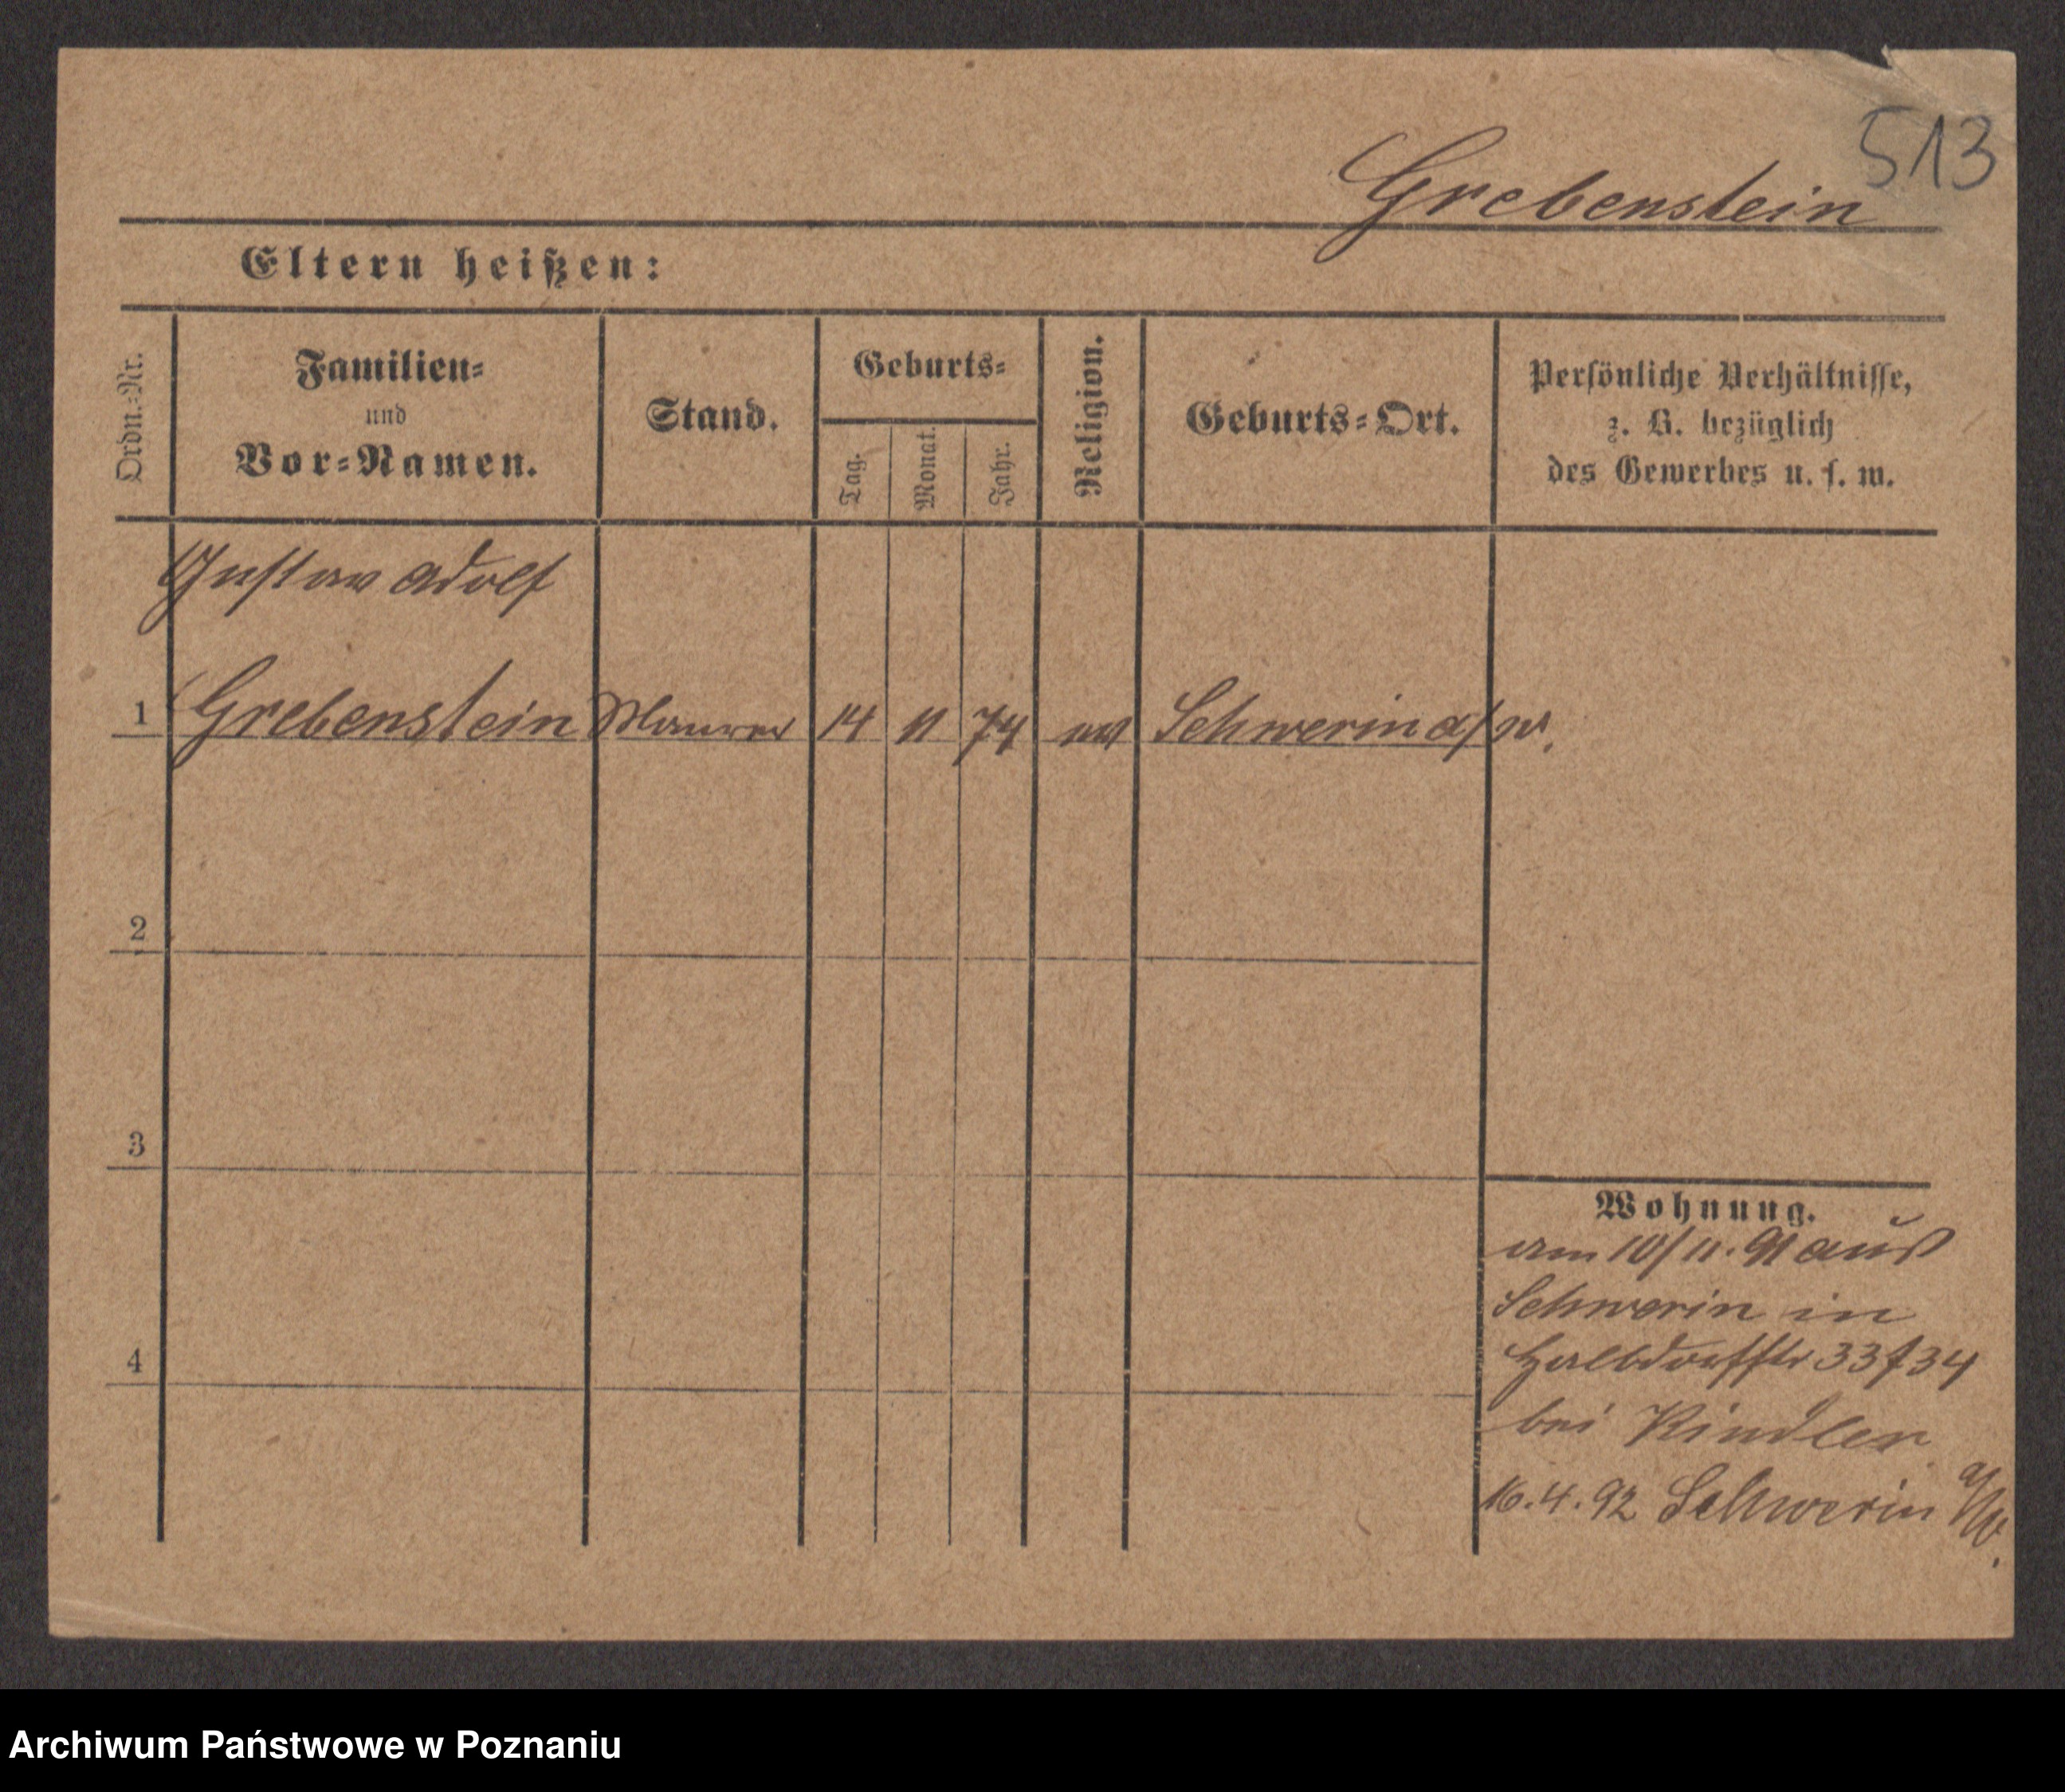 513
Grebenstein
Eltern heißen:
Ordn.-Nr.
Familien-
und
Vor-Namen.
Stand.
Geburts-
Tag.
Monat.
Jahr.
Religion.
Geburts-Ort.
Persönliche Verhältnisse,
z. B. bezüglich
des Gewerbes u. s. w.
Gustav Adolf
1 Grebenstein Maurer 14 11 74 ev Schwerin a/W.
2
3
4
Wohnung.
am 10/11. 91 aus
Schwerin in
Halbdorfstr 33/34
bei Kindler
16.4.92 Schwerin a/W.
Archiwum Państwowe w Poznaniu